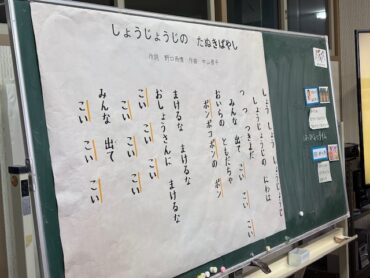 しょうじょうじの たぬきばやし
作詞 野口雨情 作曲 中山晋平
しょう しょう しょうじょうじ
しょうじょうじの にわは
つ つ つきよだ
みんな 出て こい こい こい
おいらの ともだちゃ
ポンポコポンの ポン
まけるな まけるな
おしょうさんに まけるな
こい こい こい
こい こい こい
みんな 出て こい こい こい